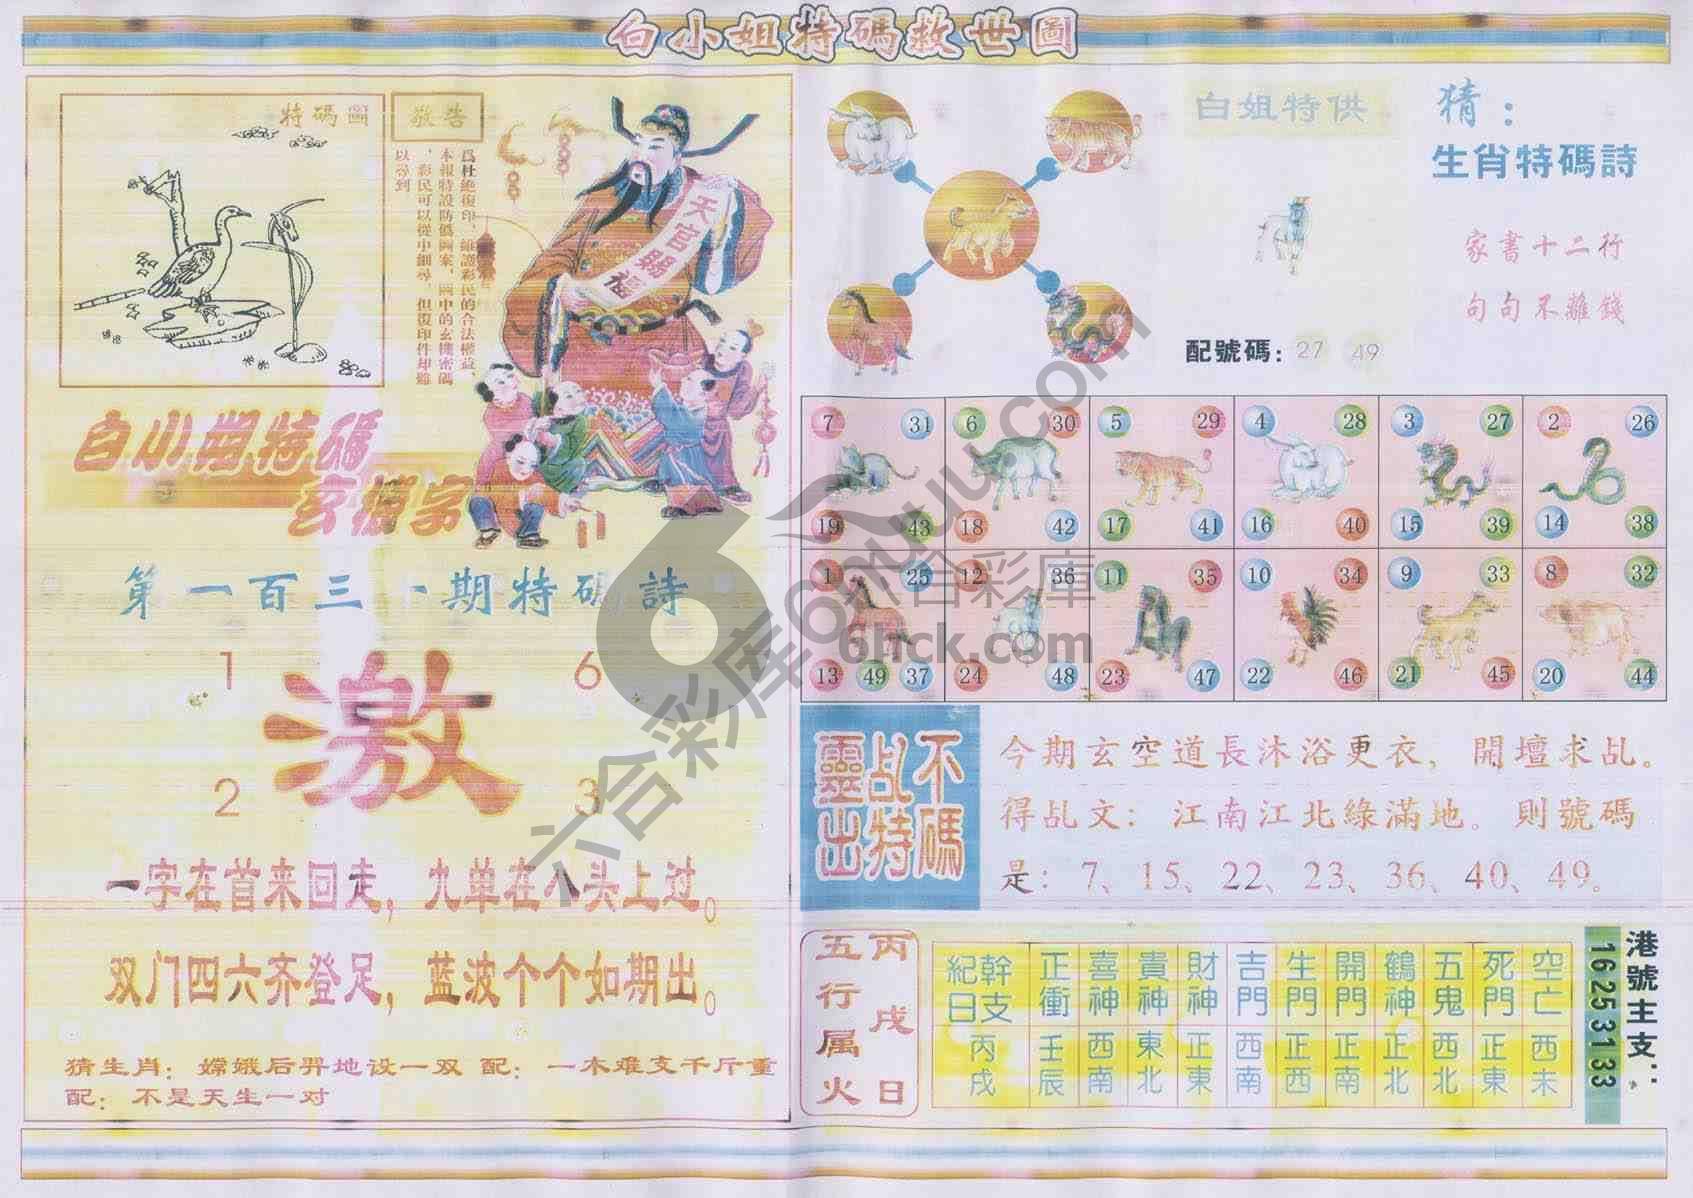 白小姐特碼救世圖
特碼圖
敬告
爲杜絶復印、維護彩民的合法權益、
本報特設防僞圖案，圖中的玄機密碼
，彩民可以從中細尋，但復印件却難
以尋到
天官賜福
白小姐特碼
玄機字
第一百三一期特碼詩
1 6
激
2 3
一字在首来回走，九单在八头上过。
双门四六齐登足，蓝波个个如期出。
猜生肖：嫦娥后羿地设一双 配：一木难支千斤重
配：不是天生一对
白姐特供
配號碼：27 49
猜：
生肖特碼詩
家書十二行
句句不離錢
7 31 6 30 5 29 4 28 3 27 2 26
19 43 18 42 17 41 16 40 15 39 14 38
1 25 12 36 11 35 10 34 9 33 8 32
13 49 37 24 48 23 47 22 46 21 45 20 44
不碼
乩特
靈出
今期玄空道長沐浴更衣，開壇求乩。
得乩文：江南江北綠滿地。則號碼
是：7、15、22、23、36、40、49。
丙戌日
五行属火
紀日 幹支 正衝 喜神 貴神 財神 吉門 生門 開門 鶴神 五鬼 死門 空亡
丙戌 壬辰 西南 東北 正東 西南 正西 正南 正北 西北 正東 西未
港號主支：
1625 3133
六合彩库 6hckuu.com
六合彩庫
6hck.com